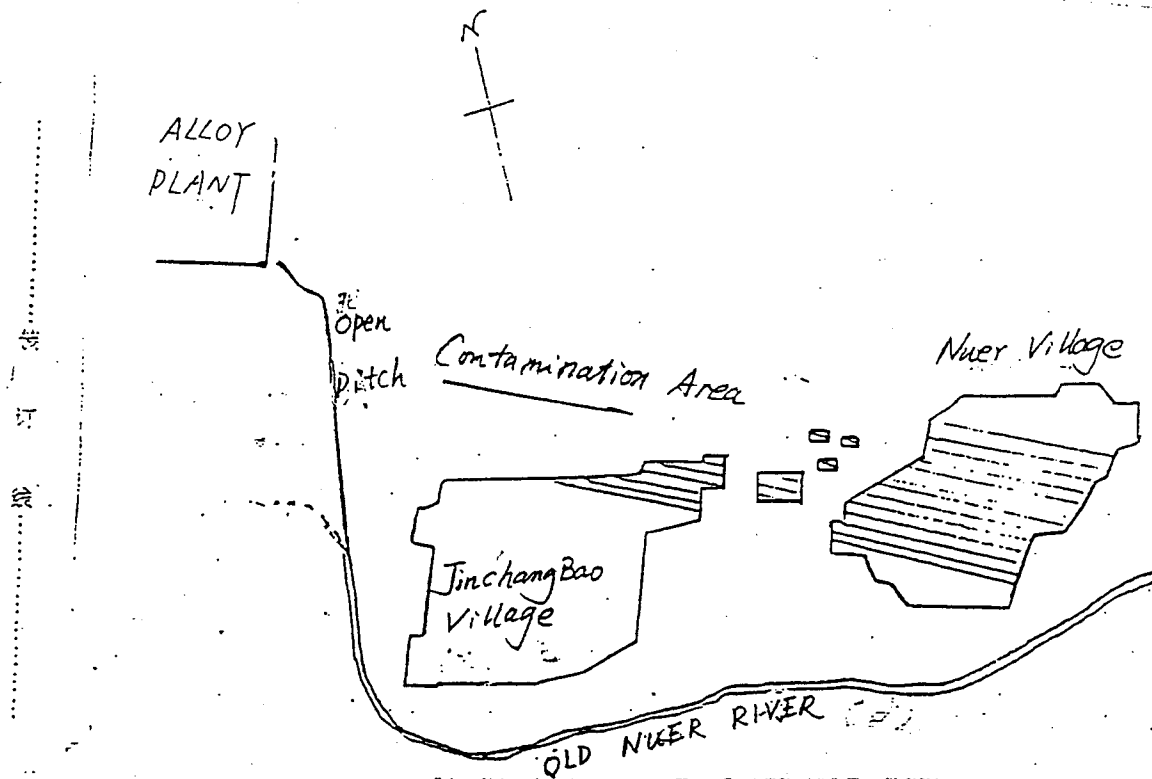 N
ALLOY
PLANT
Open
Ditch
Contamination Area
Nuer Village
JinchangBao
Village
OLD NUER RIVER
订